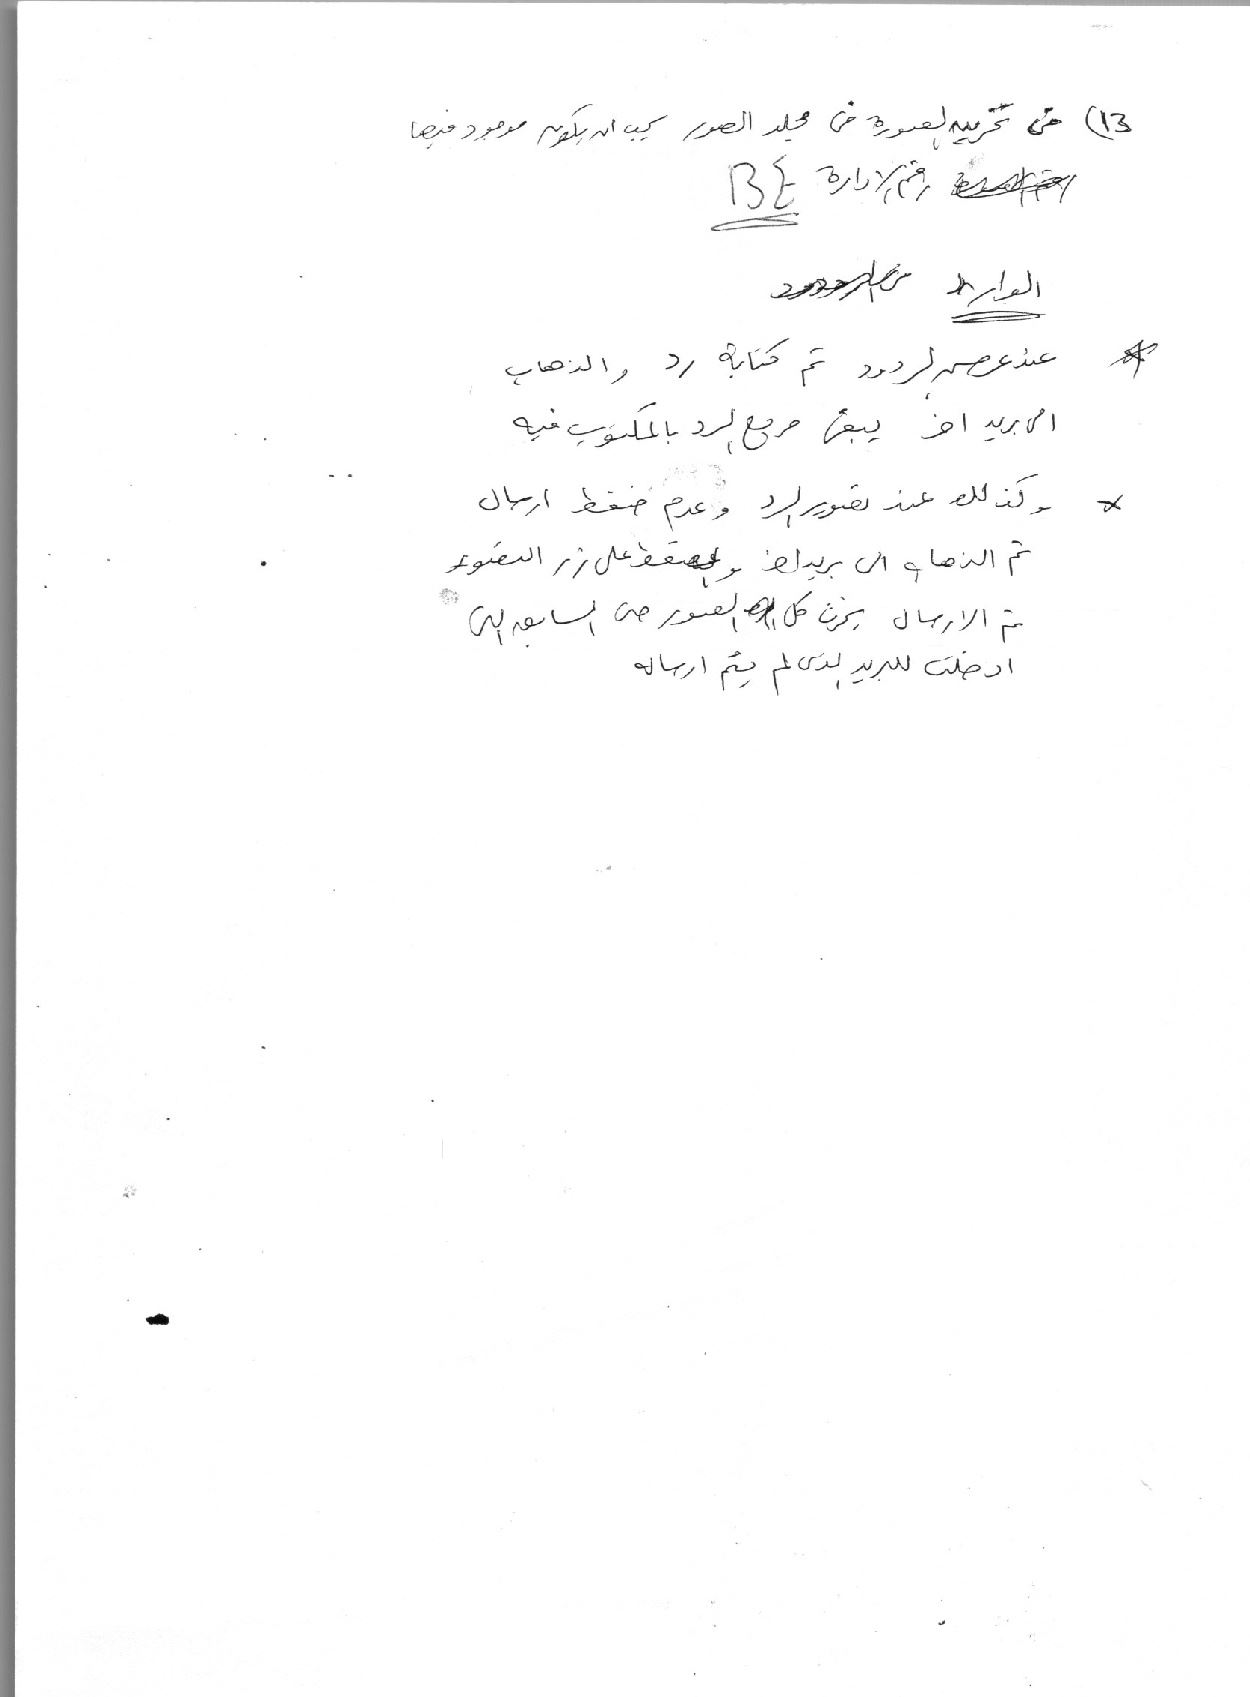 13) فى تخزين الصورة فى مجلد الصور يجب ان يكون موجود فيها
رقم الادارة BE
الوارد
* عند عرض الردود تم كتابة رد والذهاب
الى بريد اخر يبقى مربع الرد بالمكتوب فيه
* وكذلك عند تصوير الرد وعدم ضغط ارسال
ثم الذهاب الى بريد اخر والضغط على زر الضوء
ثم الارسال يخزن كل الصور حتى السابقه التى
ادخلت للبريد الذى لم يتم ارساله